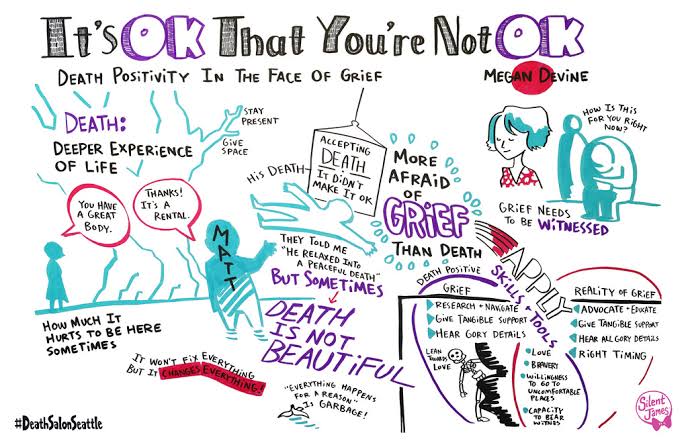 It's OK That You're Not OK
Death Positivity In The Face Of Grief
Megan Devine
Death:
Deeper Experience
Of Life
Stay
Present
Give
Space
You have
a great
body.
Thanks!
It's a
rental.
Matt
How much it
hurts to be here
sometimes
His Death
Accepting
Death
It didn't
make it ok
They told me
"He relaxed into
a peaceful death"
But sometimes
Death
is not
beautiful
It won't fix everything
But it changes everything!
"Everything happens
for a reason"
is garbage!
More
afraid
of
Grief
than death
How is this
for you right
now?
Grief needs
to be witnessed
Apply
Skills + Tools
Death Positive
Grief
Research + Navigate
Give Tangible Support
Hear Gory Details
Lean
towards
love
Love
Bravery
Willingness
to go to
uncomfortable
places
Capacity
to bear
witnes
Reality of Grief
Advocate + Educate
Give Tangible Support
Hear all Gory Details
Right Timing
Silent
James
#DeathSalonSeattle